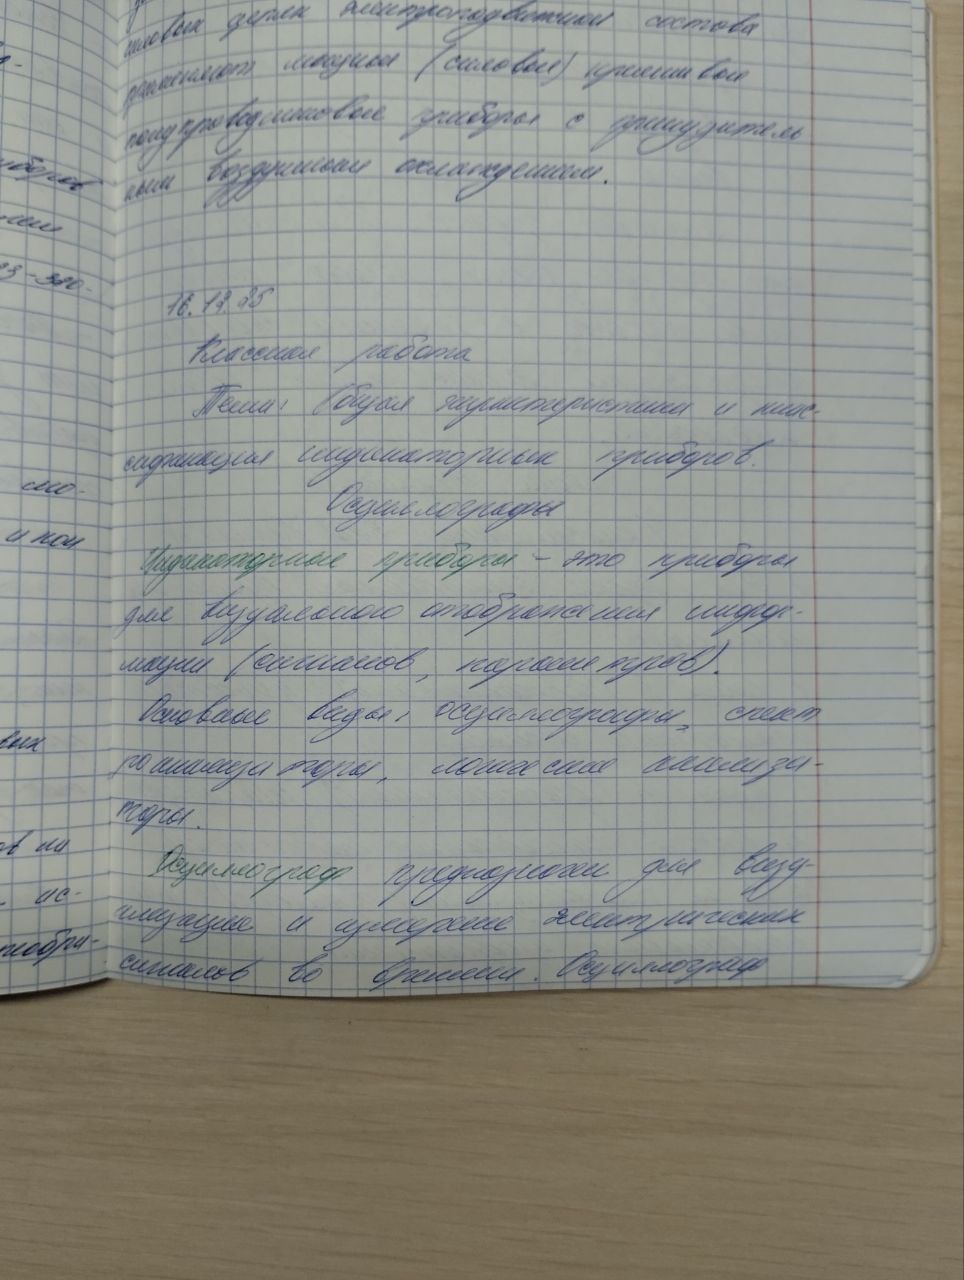 силовых цепях электроподвижного состава
применяют мощные (силовые) кремниевые
полупроводниковые приборы с принудитель
ным воздушным охлаждением.
16.12.25
Классная работа
Тема: Общая характеристика и клас-
сификация индикаторных приборов.
Осциллографы
Индикаторные приборы - это приборы
для визуального отображения инфор-
мации (сигналов, параметров).
Основные виды: осциллографы, спект
роанализаторы, логические анализа-
торы.
Осциллограф предназначен для визу-
ализации и измерение электрических
сигналов во времени. Осциллограф